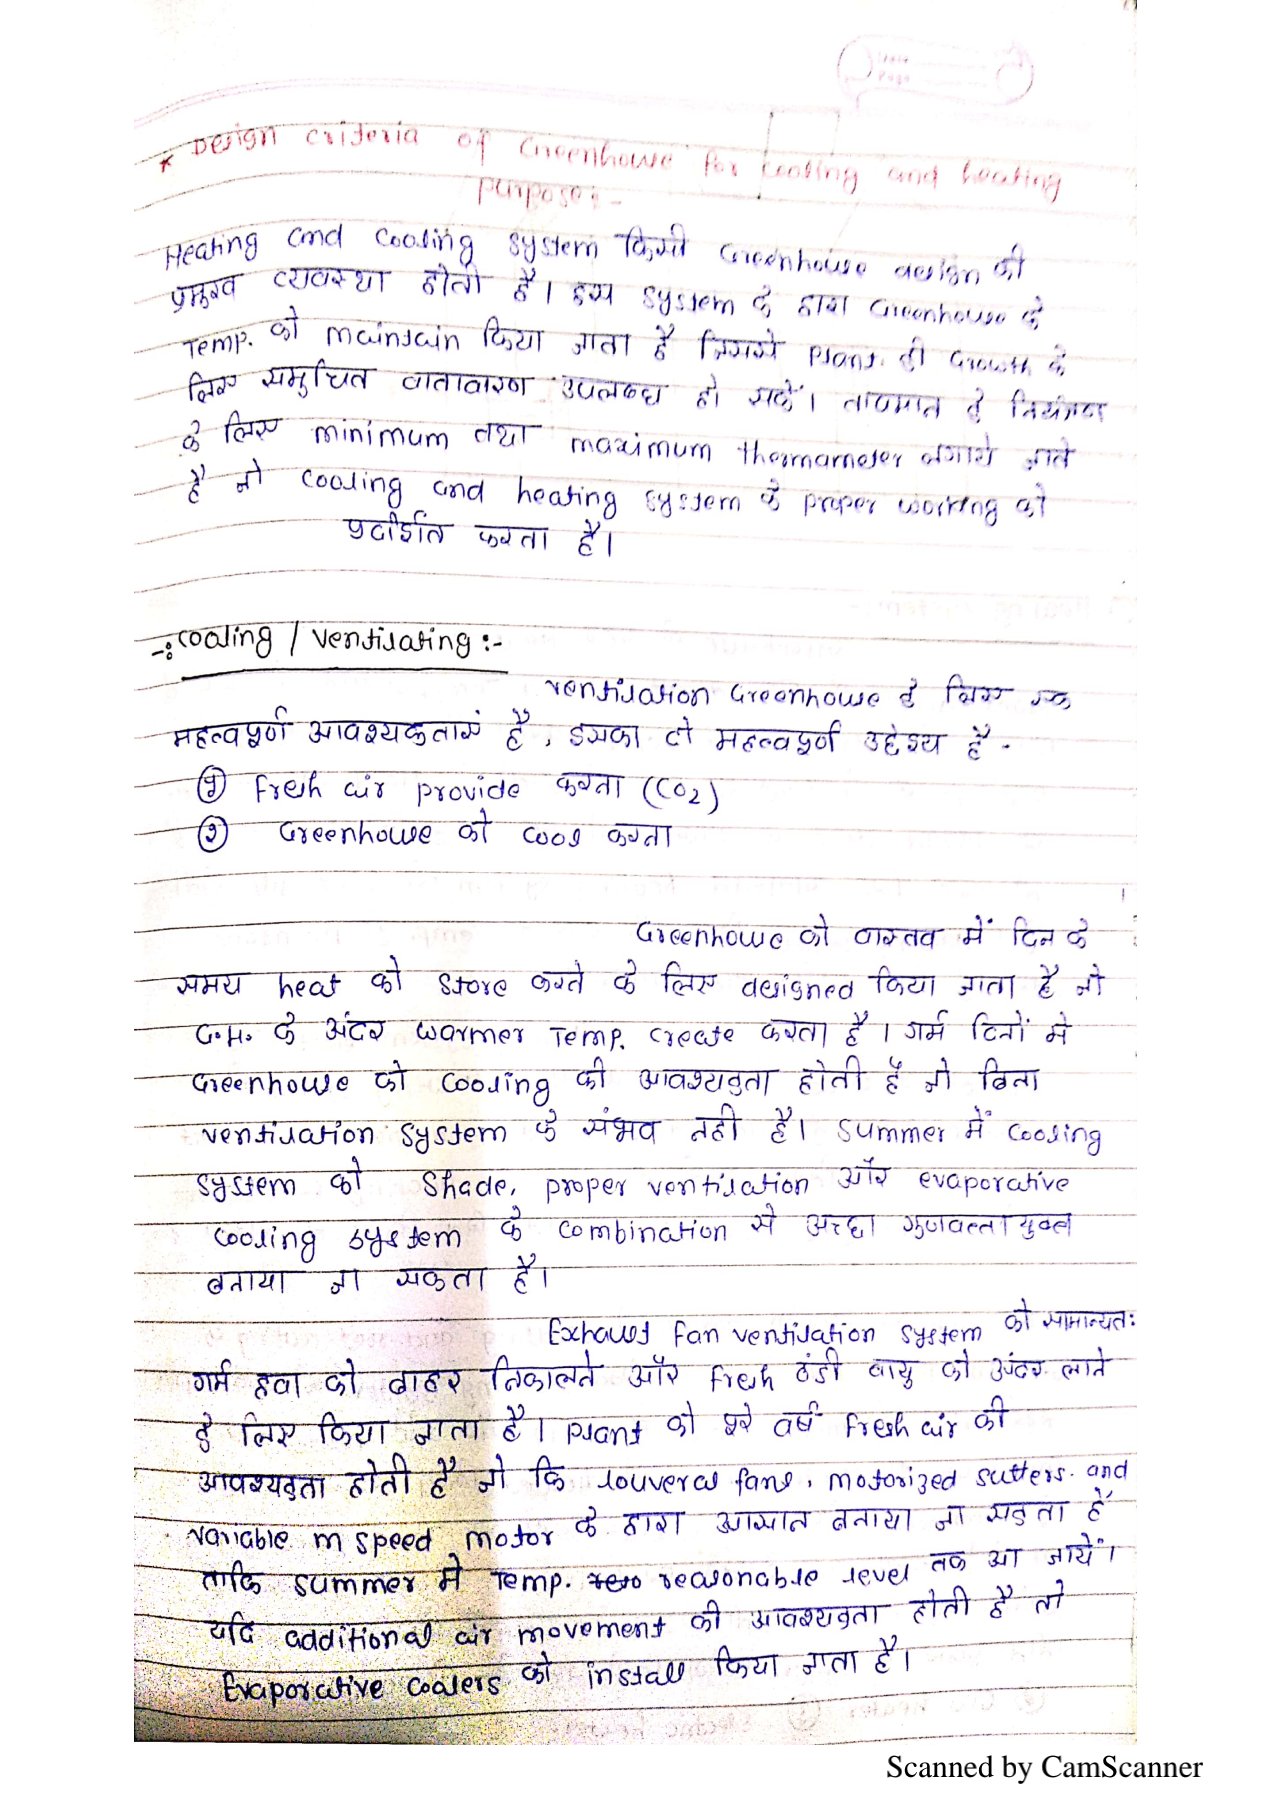 * Design criteria of Greenhouse for cooling and heating
purpose :-
Heating and cooling system किसी Greenhouse design की
प्रमुख व्यवस्था होती है। इस system के द्वारा Greenhouse के
Temp. को maintain किया जाता है जिससे plant की Growth के
लिए समुचित वातावारण उपलब्ध हो सकें। तापमान के नियंत्रण
के लिए minimum तथा maximum thermameter लगाये जाते
है जो cooling and heating system के proper working को
प्रदर्शित करता है।
-: cooling / ventilating :-
ventilation Greenhouse के लिए एक
महत्वपूर्ण आवश्यकताएं है, इसका दो महत्वपूर्ण उद्देश्य है -
(१) Fresh air provide करना (CO2)
(२) Greenhouse को cool करना
Greenhouse को वास्तव में दिन के
समय heat को store करने के लिए designed किया जाता है जो
G.H. के अंदर warmer Temp. create करता है। गर्म दिनों मे
Greenhouse को cooling की आवश्यकता होती है जो बिना
ventilation system के संभव नही है। summer में cooling
system को shade, proper ventilation और evaporative
cooling system के combination से अच्छा गुणवत्ता युक्त
बनाया जा सकता है।
Exhaust fan ventilation system को सामान्यतः
गर्म हवा को बाहर निकालने और fresh ठंडी वायु को अंदर लाने
के लिए किया जाता है। plant को पूरे वर्ष fresh air की
आवश्यकता होती है जो कि louveral fans, motorized sutters. and
variable m speed motor के द्वारा आसान बनाया जा सकता है
ताकि summer मे Temp. reasonable level तक आ जायें।
यदि additional air movement की आवश्यकता होती है तो
Evaporative coolers को install किया जाता है।
Scanned by CamScanner